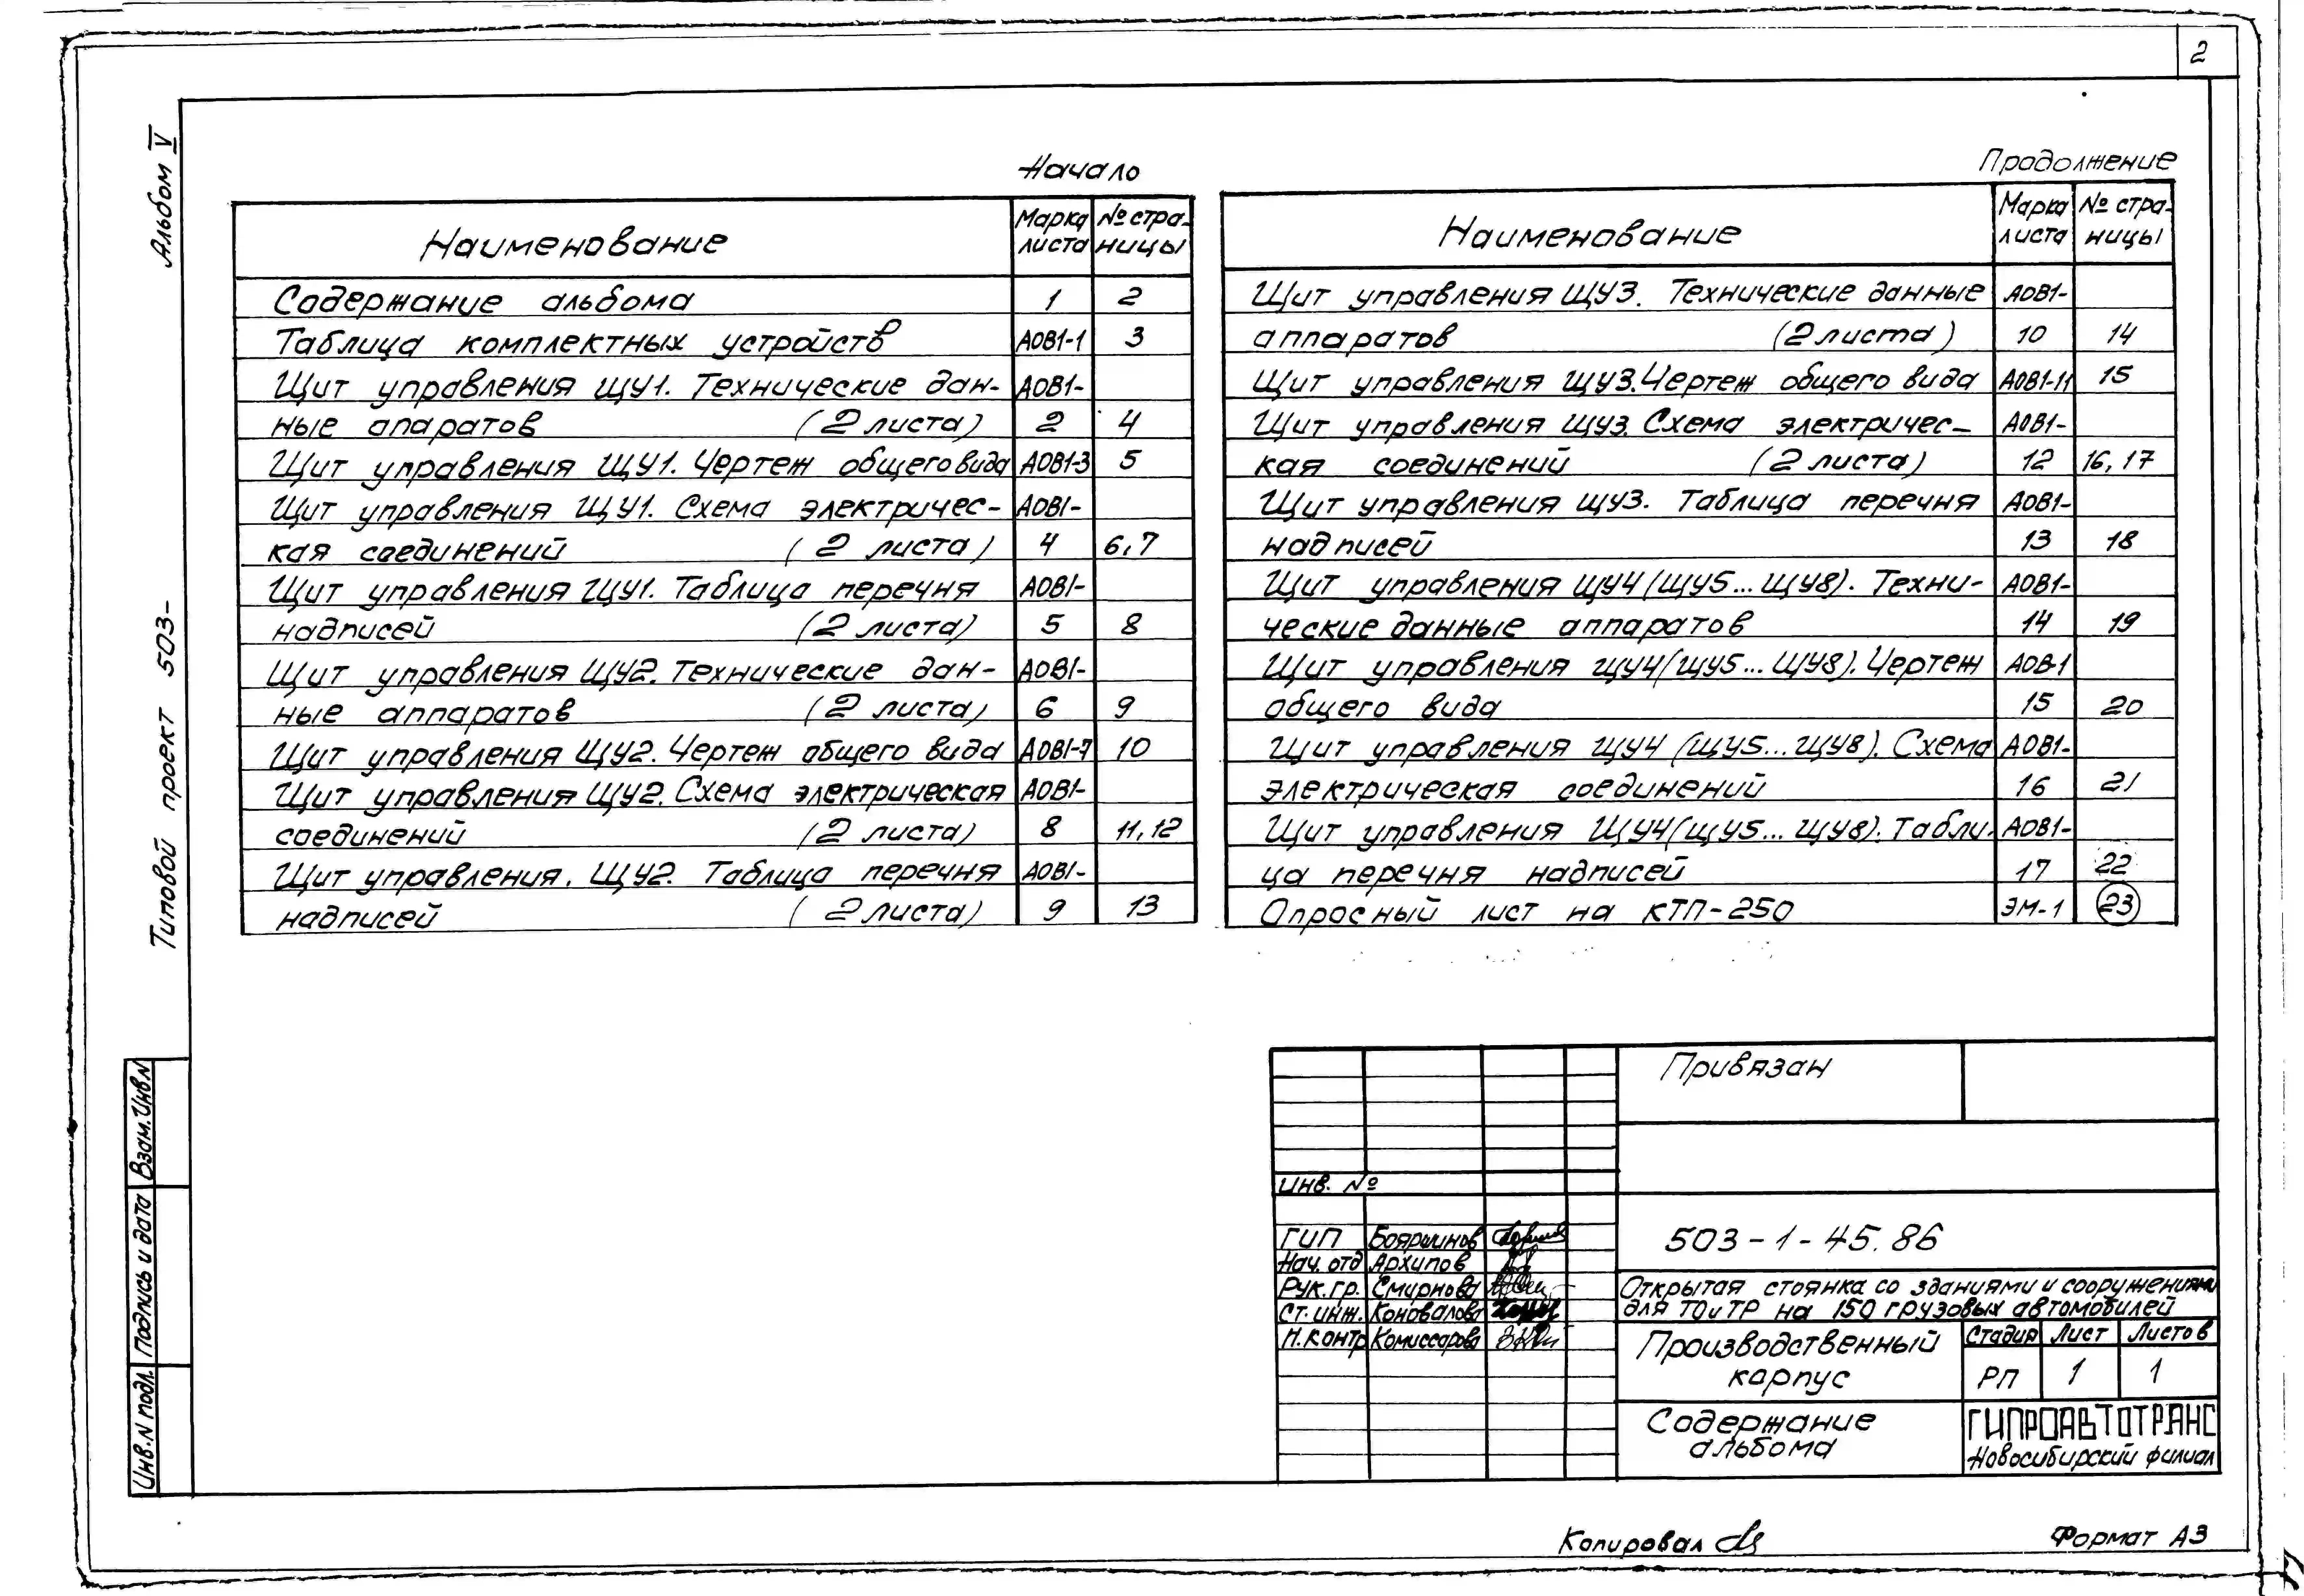 2
Альбом V
Типовой проект 503-
Начало
Наименование
Марка листа
№ страницы
Содержание альбома 1 2
Таблица комплектных устройств АОВ1-1 3
Щит управления ЩУ1. Технические дан- АОВ1-
ные апаратов (2 листа) 2 4
Щит управления ЩУ1. Чертеж общего вида АОВ1-3 5
Щит управления ЩУ1. Схема электричес- АОВ1-
кая соединений (2 листа) 4 6,7
Щит управления ЩУ1. Таблица перечня АОВ1-
надписей (2 листа) 5 8
Щит управления ЩУ2. Технические дан- АОВ1-
ные аппаратов (2 листа) 6 9
Щит управления ЩУ2. Чертеж общего вида АОВ1-7 10
Щит управления ЩУ2. Схема электрическая АОВ1-
соединений (2 листа) 8 11,12
Щит управления. ЩУ2. Таблица перечня АОВ1-
надписей (2 листа) 9 13
Продолжение
Наименование
Марка листа
№ страницы
Щит управления ЩУ3. Технические данные АОВ1-
аппаратов (2 листа) 10 14
Щит управления ЩУ3. Чертеж общего вида АОВ1-11 15
Щит управления ЩУ3. Схема электричес- АОВ1-
кая соединений (2 листа) 12 16,17
Щит управления ЩУ3. Таблица перечня АОВ1-
надписей 13 18
Щит управления ЩУ4 (ЩУ5...ЩУ8). Техни- АОВ1-
ческие данные аппаратов 14 19
Щит управления ЩУ4 (ЩУ5...ЩУ8). Чертеж АОВ-1
общего вида 15 20
Щит управления ЩУ4 (ЩУ5...ЩУ8). Схема АОВ1-
электрическая соединений 16 21
Щит управления ЩУ4 (ЩУ5...ЩУ8). Табли- АОВ1-
ца перечня надписей 17 22
Опросный лист на КТП-250 ЭМ-1 23
Взам. Инв. N
Подпись и дата
Инв. N подл.
Привязан
Инв. №
ГИП Бояршинов
Нач. отд Архипов
Рук. гр. Смирнова
Ст. инж. Коновалова
Н. контр Комиссарова
503-1-45.86
Открытая стоянка со зданиями и сооружениями
для ТО и ТР на 150 грузовых автомобилей
Производственный
корпус
Стадия Лист Листов
РП 1 1
Содержание
альбома
ГИПРОАВТОТРАНС
Новосибирский филиал
Копировал
Формат А3